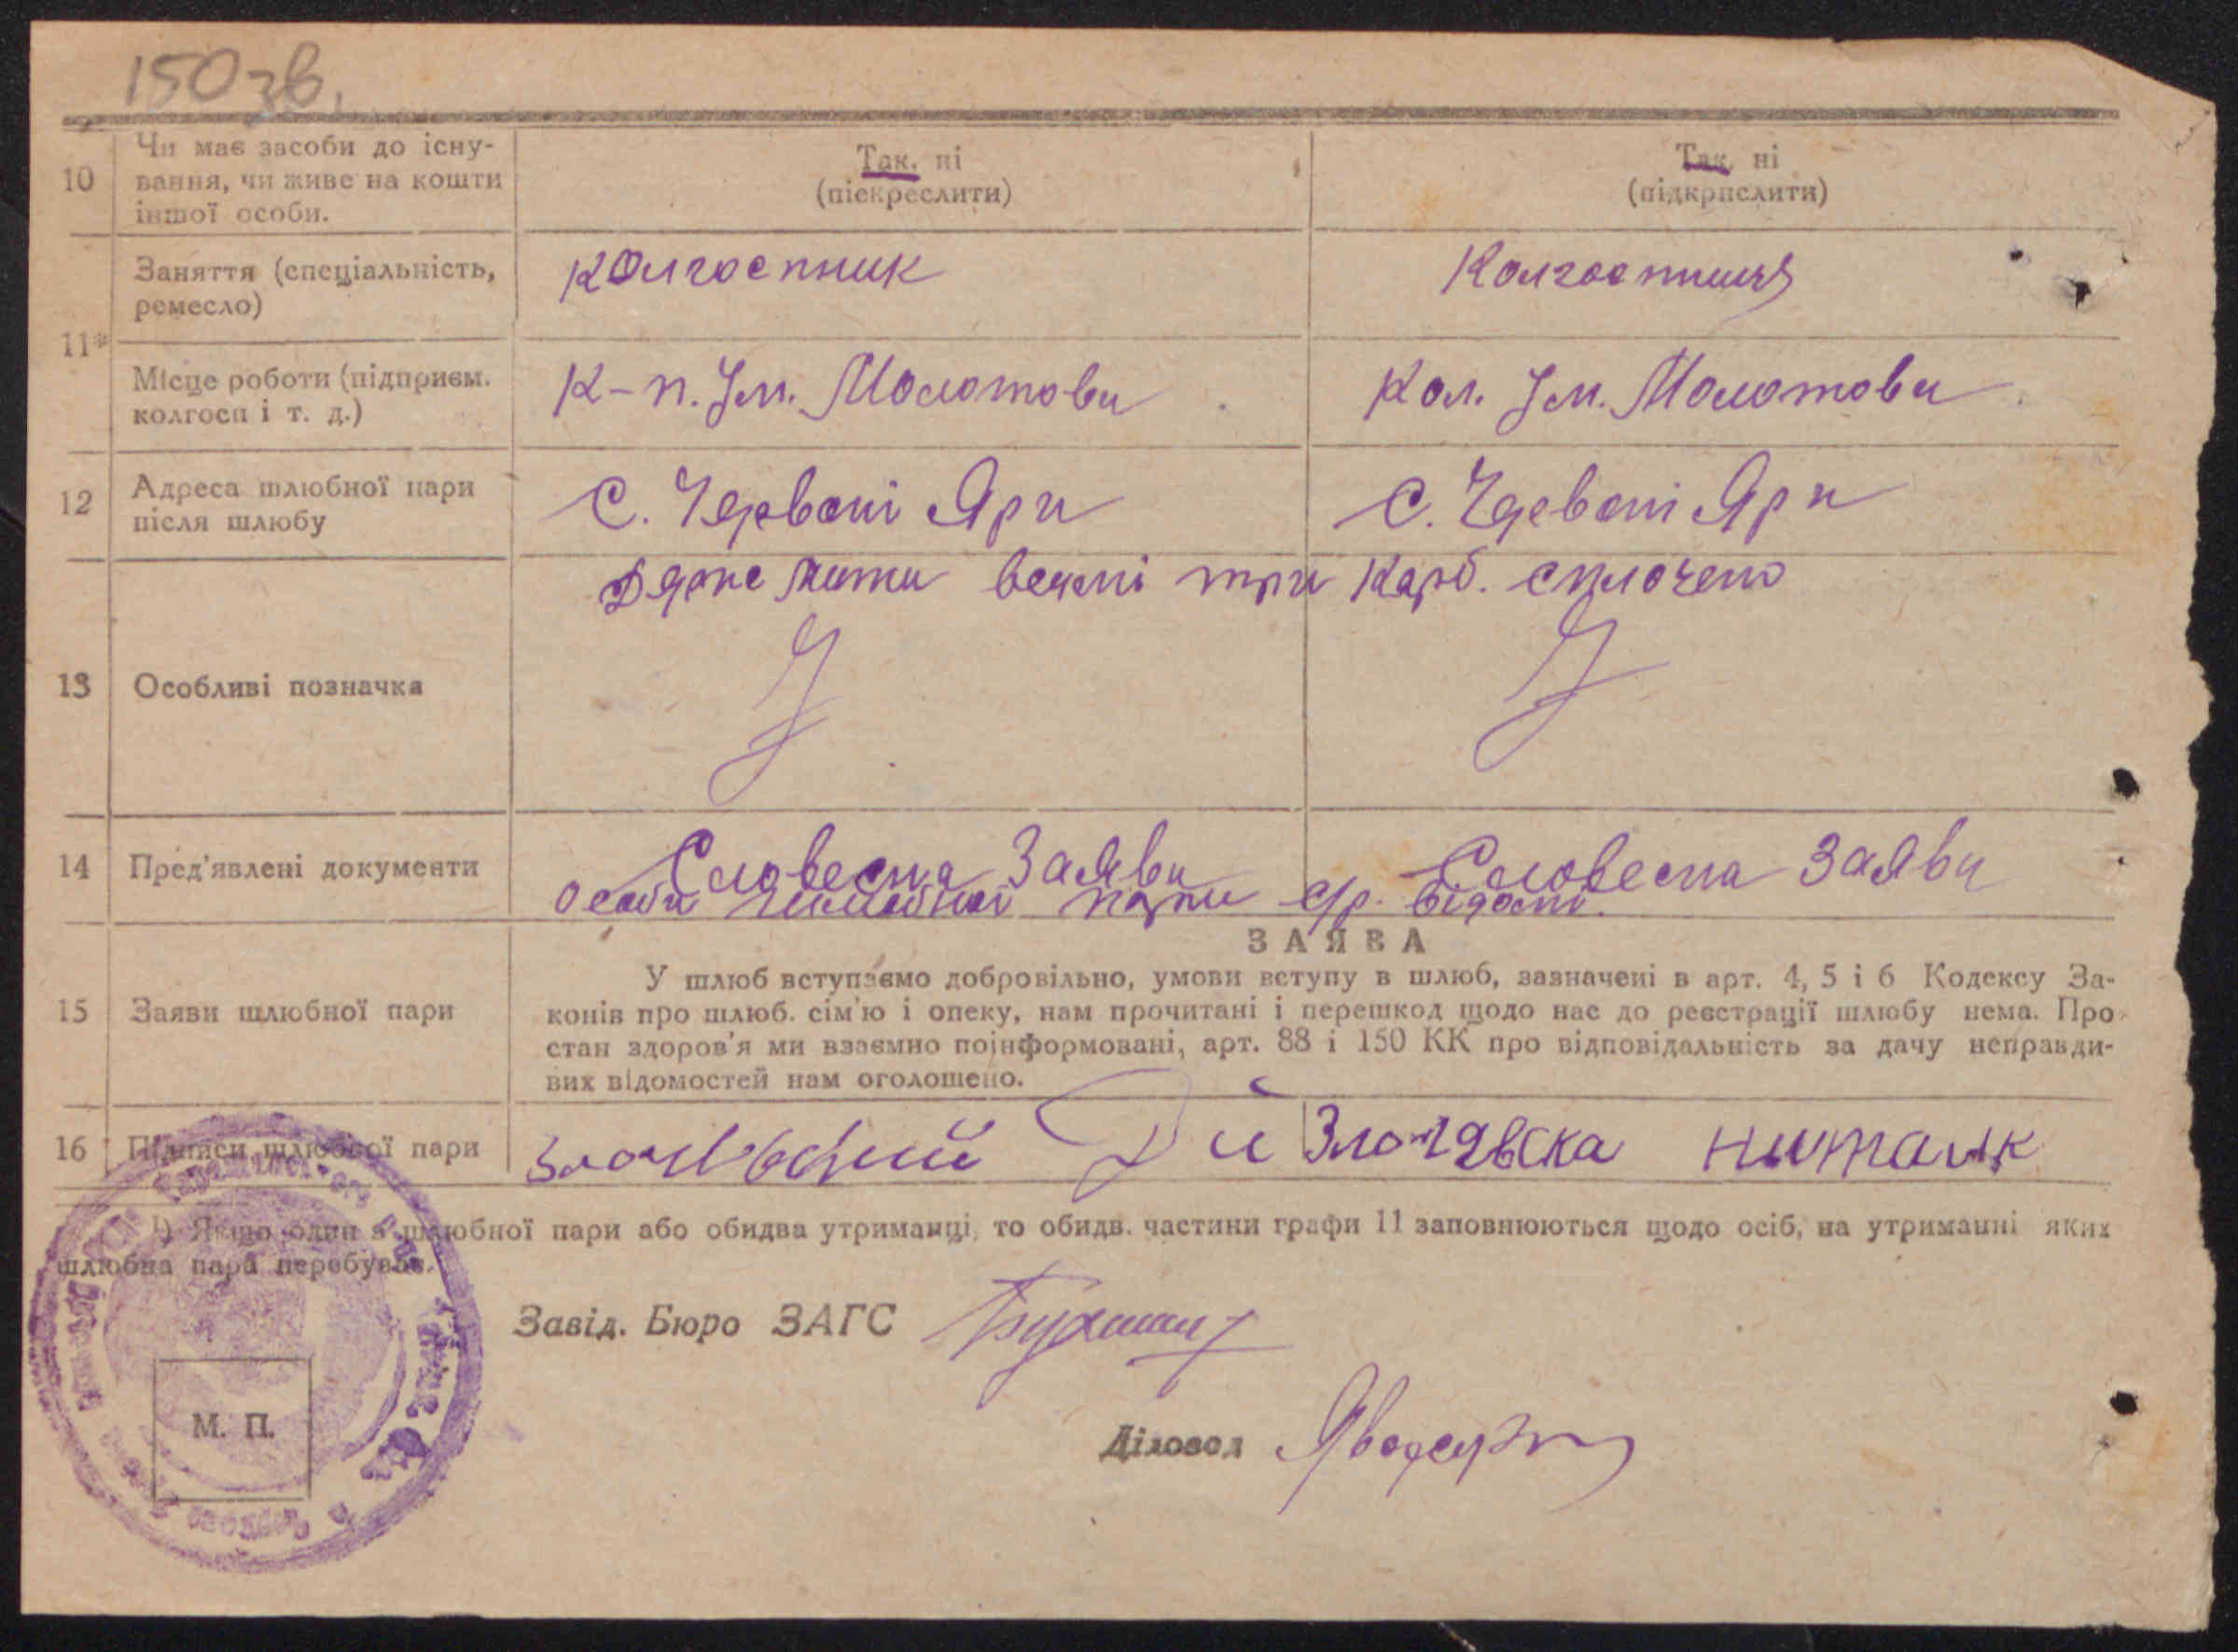 150 зв.
10 Чи має засоби до існу-
вання, чи живе на кошти
іншої особи.
Так, ні
(піскреслити)
Так, ні
(підкрислити)
11*
Заняття (спеціальність,
ремесло)
колгоспник
Колгоспниця
Місце роботи (підприєм.
колгосп і т. д.)
К-п. Ім. Молотова
Кол. Ім. Молотова
12 Адреса шлюбної пари
після шлюбу
С. Червоні Яри
С. Червоні Яри
три карб. сплочено
13 Особливі позначка
14 Пред'явлені документи
Словесна Заява
Словесна Заява
особи шлюбної пари с/р. відомі.
ЗАЯВА
15 Заяви шлюбної пари
У шлюб вступаємо добровільно, умови вступу в шлюб, зазначені в арт. 4, 5 і 6 Кодексу За-
конів про шлюб. сім'ю і опеку, нам прочитані і перешкод щодо нас до реєстрації шлюбу нема. Про
стан здоров'я ми взаємно поінформовані, арт. 88 і 150 КК про відповідальність за дачу неправди-
вих відомостей нам оголошено.
16 Підписи шлюбної пари
¹) Якщо один з шлюбної пари або обидва утриманці, то обидв. частини графи 11 заповнюються щодо осіб, на утриманні яких
шлюбна пара перебуває.
Завід. Бюро ЗАГС
М. П.
Діловод